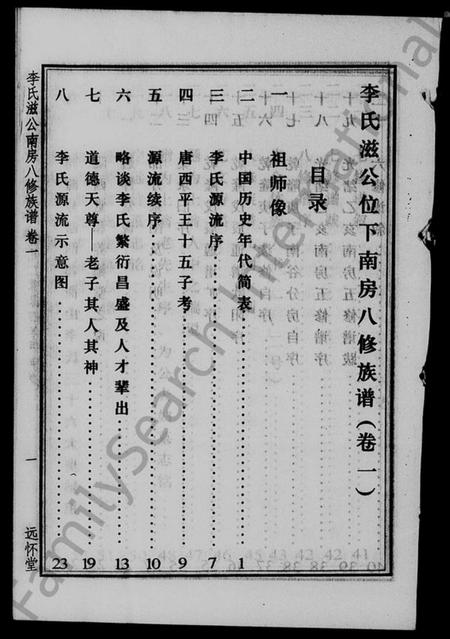 李氏滋公位下南房八修族谱（卷一）
目录
一 祖师像
二 中国历史年代简表 1
三 李氏源流序 7
四 唐西平王十五子考 9
五 源流续序 10
六 略谈李氏繁衍昌盛及人才辈出 13
七 道德天尊—老子其人其神 19
八 李氏源流示意图 23
李氏滋公南房八修族谱 卷一
一
远怀堂
FamilySearch International